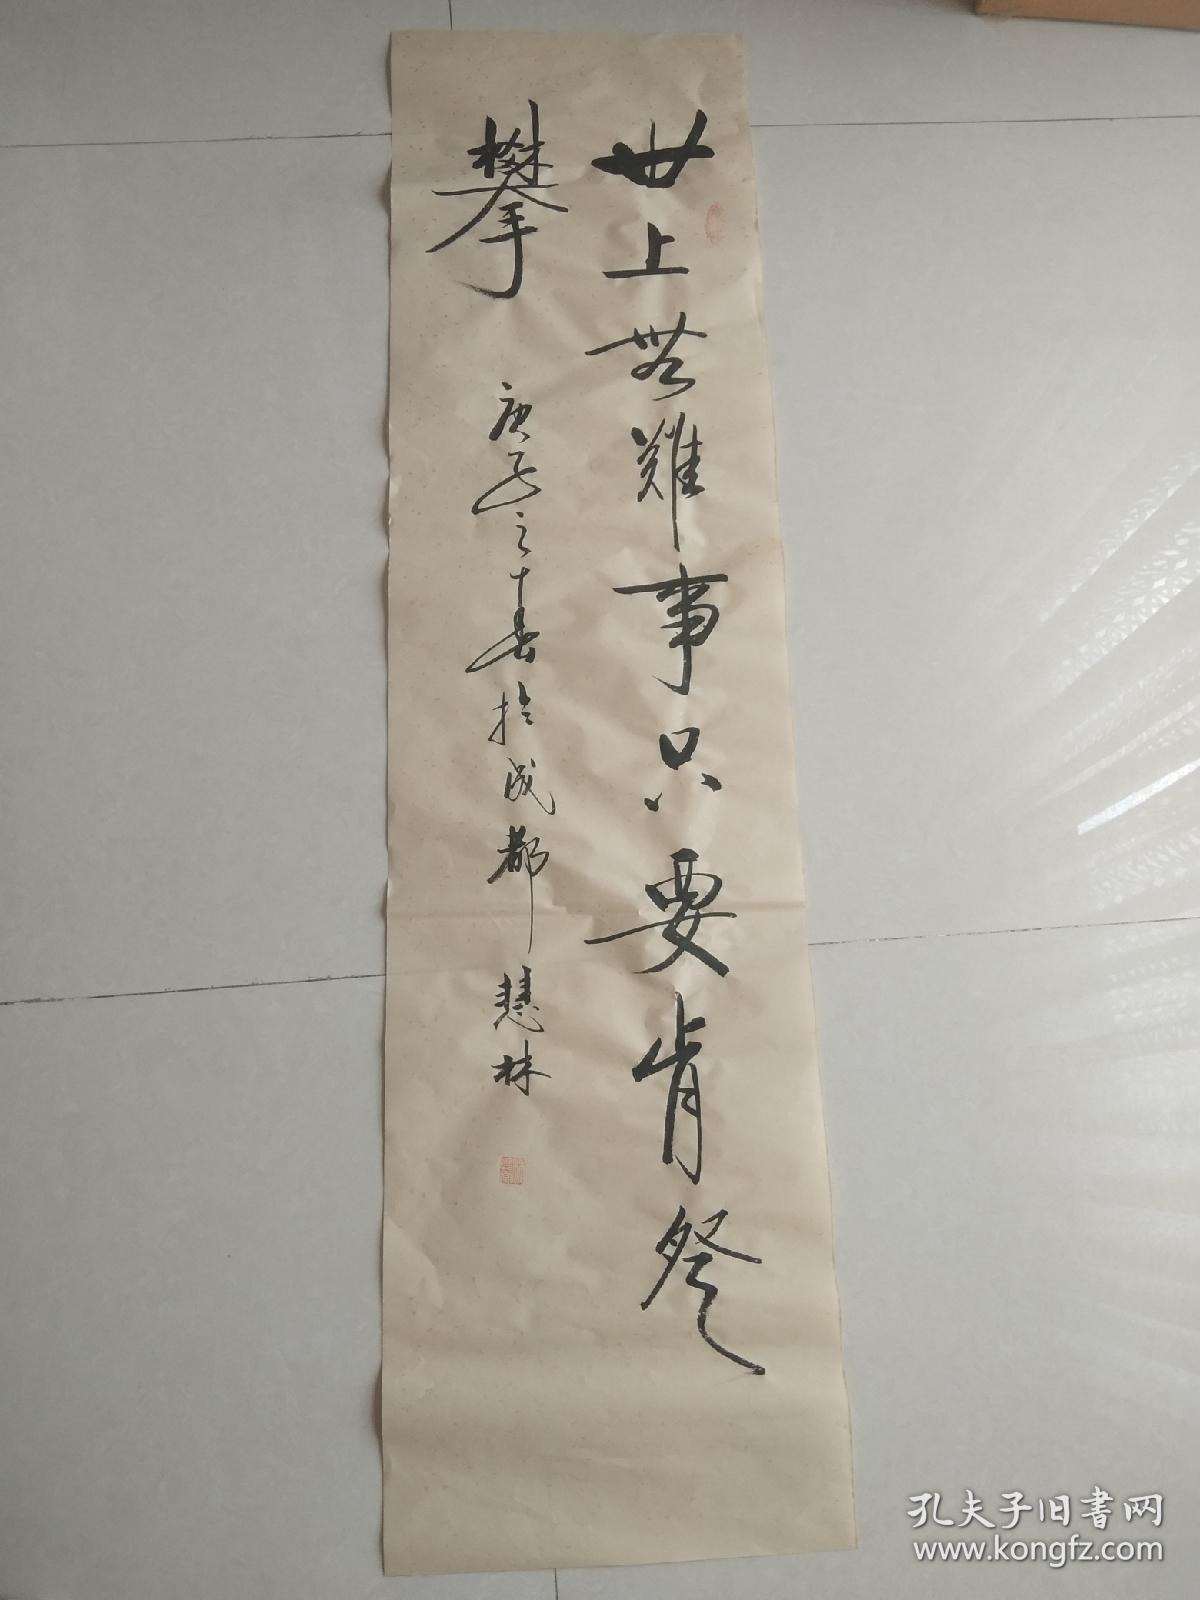 世上無難事只要肯登
攀
庚子之春於成都慧林
孔夫子旧書网
www.kongfz.com